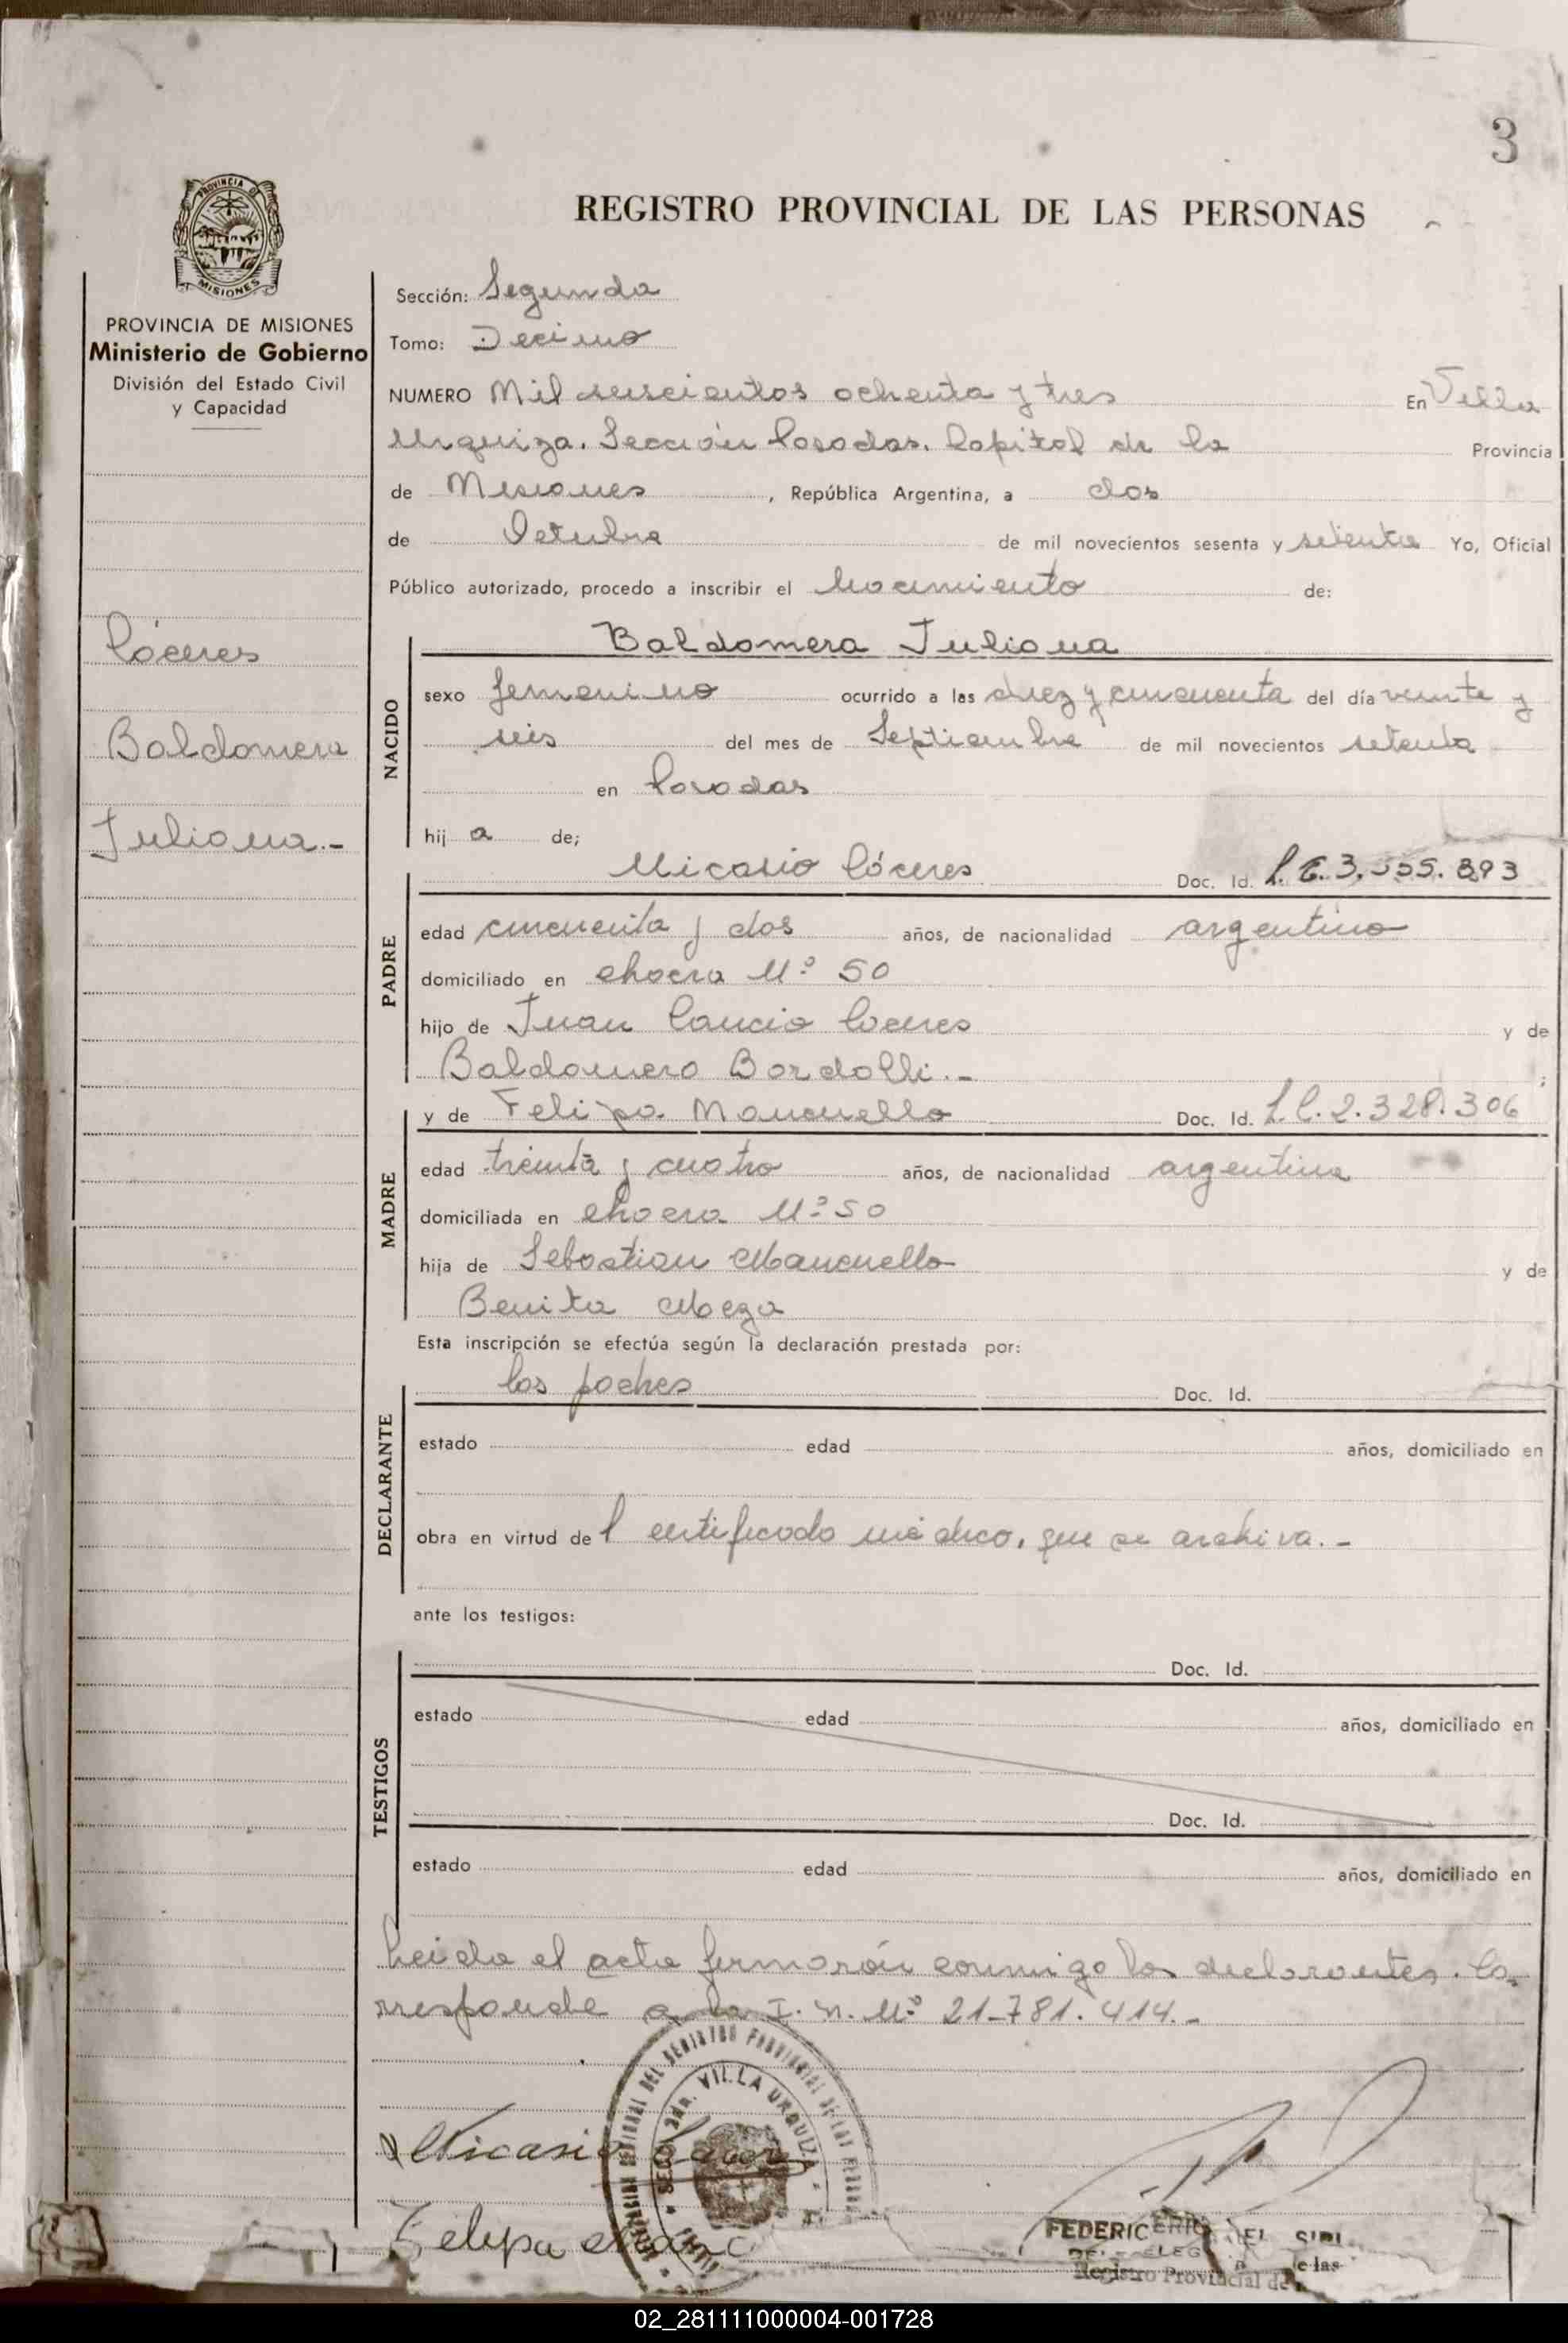 3
PROVINCIA DE
MISIONES
REGISTRO PROVINCIAL DE LAS PERSONAS
PROVINCIA DE MISIONES
Ministerio de Gobierno
División del Estado Civil
y Capacidad
Cáceres
Baldomera
Juliana.-
Sección: Segunda
Tomo: Decimo
NUMERO Mil seiscientos ochenta y tres En Villa
Urquiza. Sección Posadas. Capital de la Provincia
de Misiones, República Argentina, a dos
de Octubre de mil novecientos sesenta y setenta Yo, Oficial
Público autorizado, procedo a inscribir el Nacimiento de:
NACIDO
Baldomera Juliana
sexo femenino ocurrido a las diez y cincuenta del día veinte y
seis del mes de Septiembre de mil novecientos setenta
en Posadas
hij a de;
PADRE
Nicasio Cáceres Doc. Id. L.E. 3.555.893
edad cincuenta y dos años, de nacionalidad argentino
domiciliado en chacra Nº 50
hijo de Juan Cáceres y de
Baldomera .- ;
MADRE
y de Felipa Mancuello Doc. Id. L.C. 2.328.306
edad treinta y cuatro años, de nacionalidad argentina
domiciliada en chacra Nº 50
hija de Sebastian Mancuello y de
Benita Meza
Esta inscripción se efectúa según la declaración prestada por:
DECLARANTE
los padres Doc. Id.
estado edad años, domiciliado en
obra en virtud del certificado médico, que se archiva.-
ante los testigos:
TESTIGOS
Doc. Id.
estado edad años, domiciliado en
Doc. Id.
estado edad años, domiciliado en
Leida el acta firmarán conmigo los declarantes. Co-
rresponde a la I. N. Nº 21.781.414.-
DEL REGISTRO PROVINCIAL DE LAS
VILLA URQUIZA
Nicasio
Felipa
FEDERIC
Registro Provincial de
02_281111000004-001728